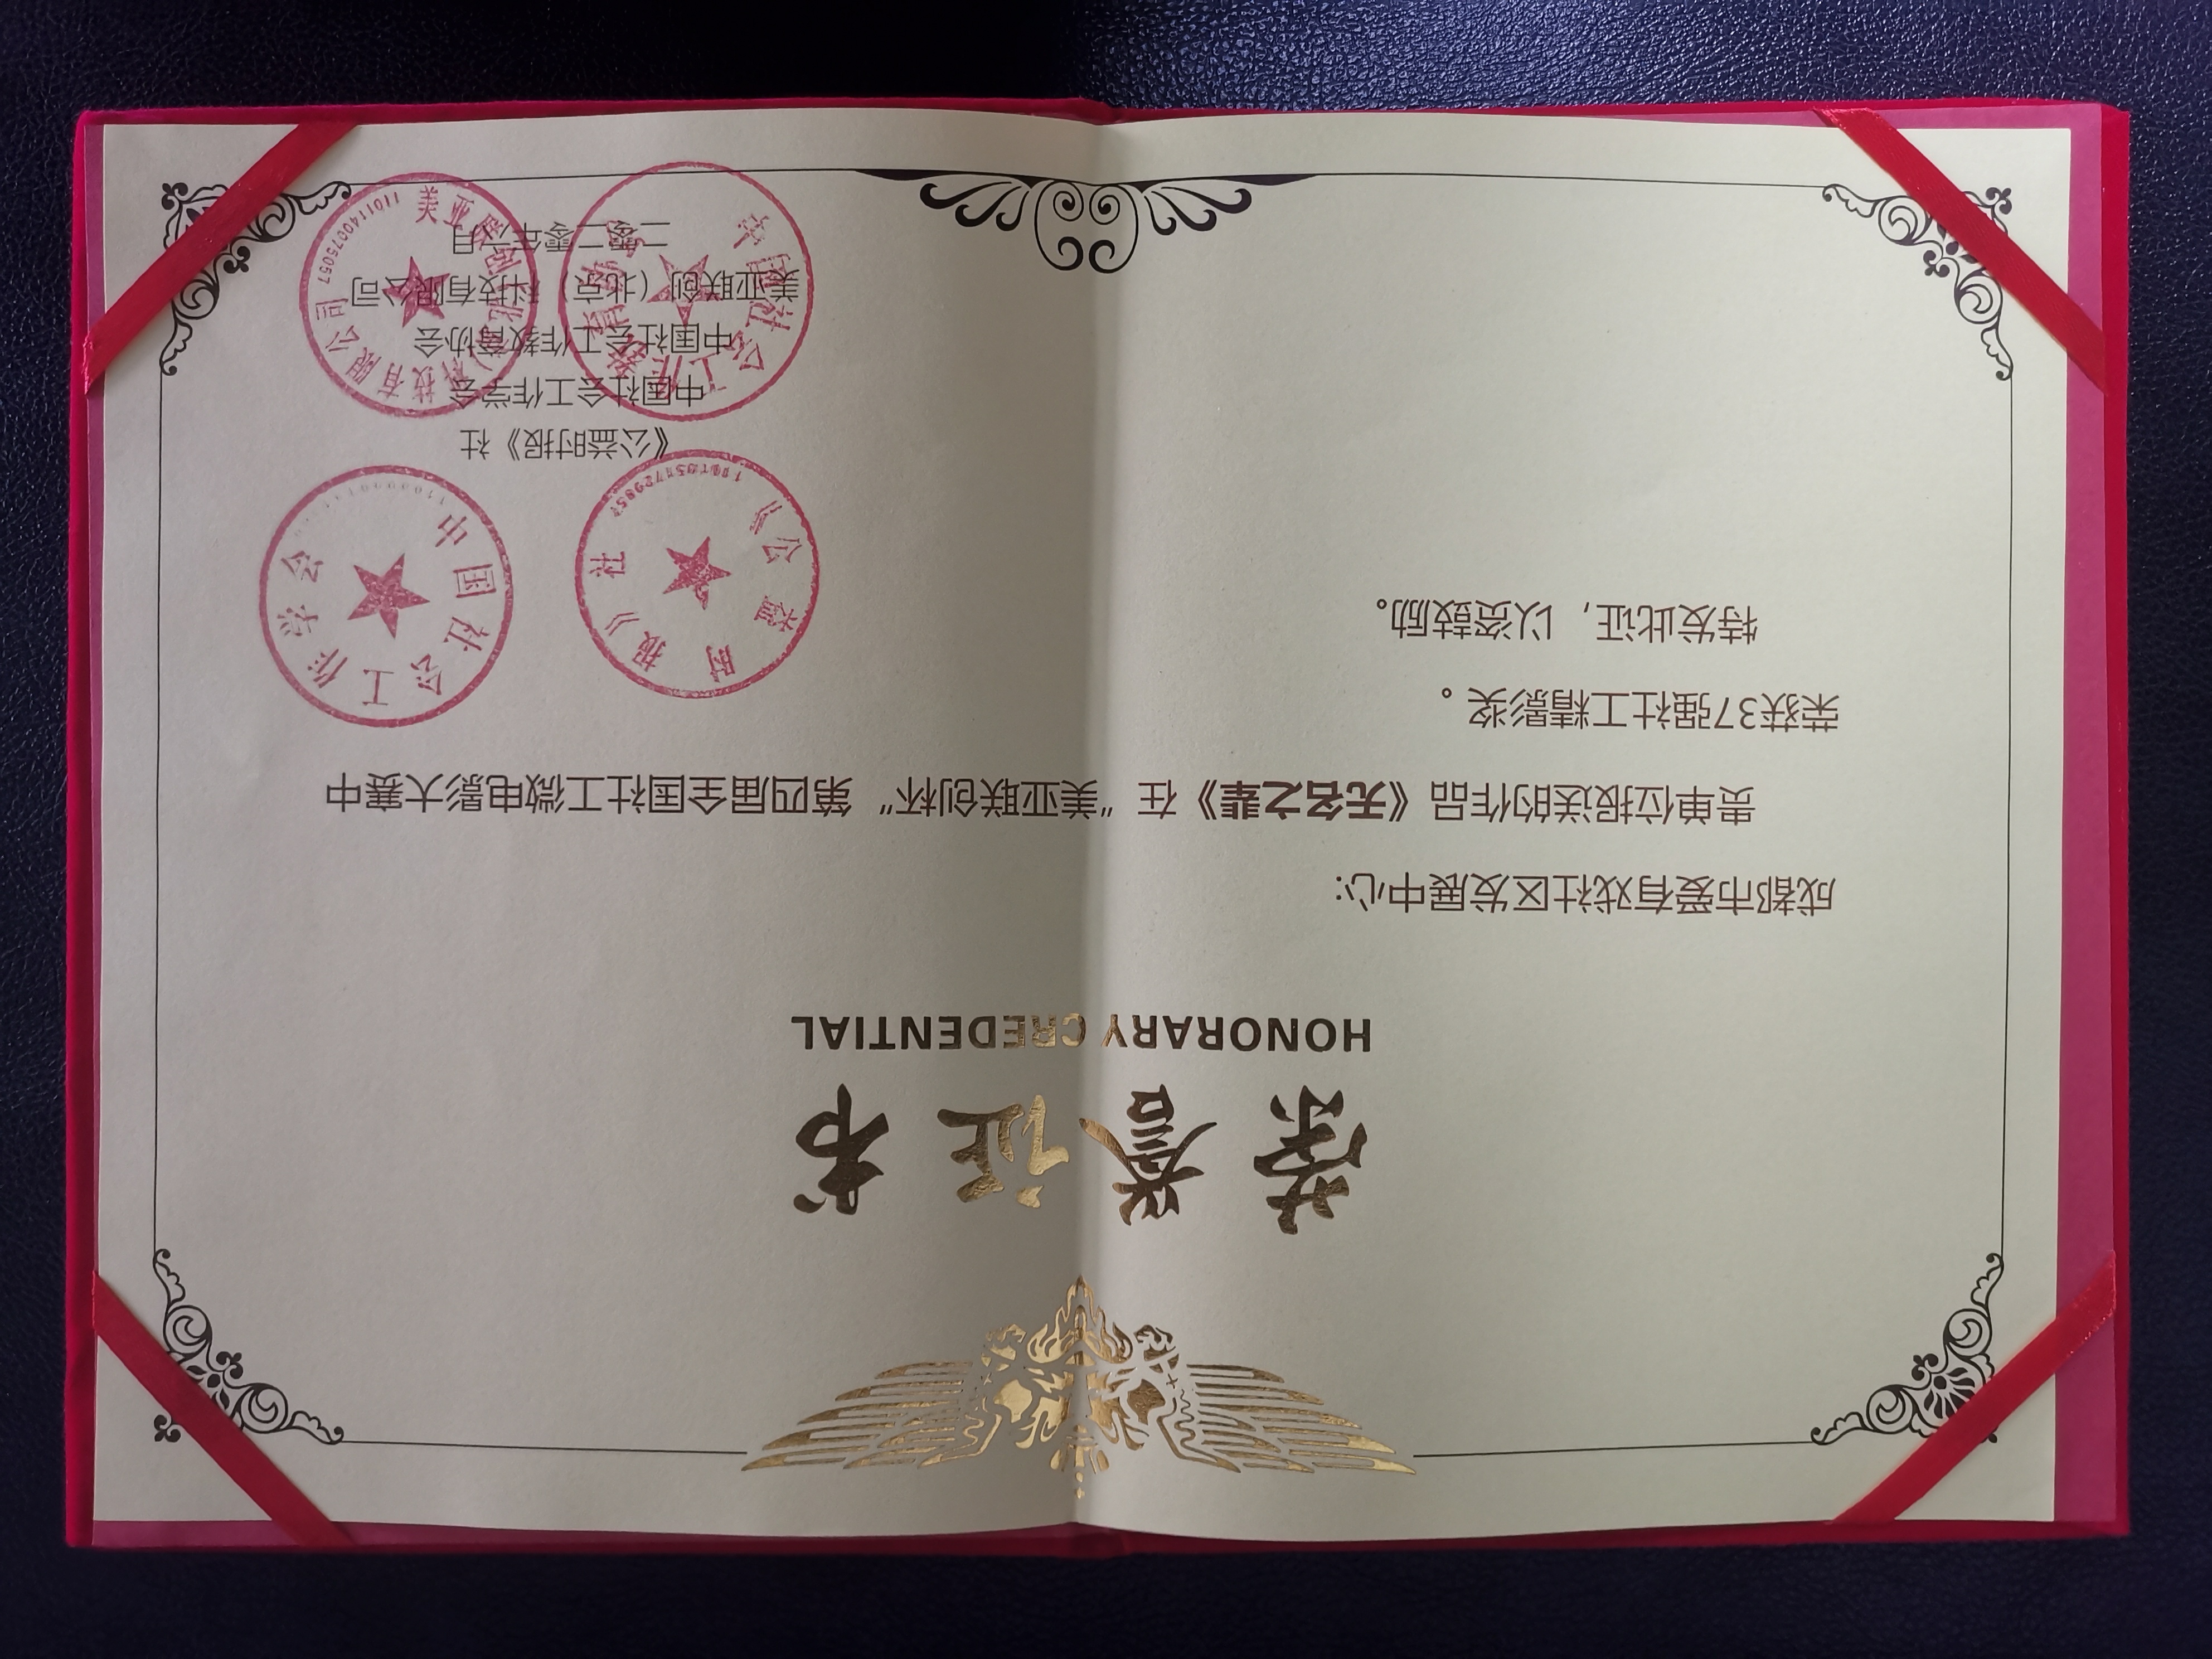 荣誉证书
HONORARY CREDENTIAL
成都市爱有戏社区发展中心:
贵单位报送的作品《无名之辈》在“美亚联创杯”第四届全国社工微电影大赛中
荣获37强社工精影奖。
特发此证，以资鼓励。
《公益时报》社
中国社会工作学会
中国社会工作教育协会
美亚联创（北京）科技有限公司
二零二零年六月
《公益时报》社
中国社会工作学会
中国社会工作教育协会
美亚联创（北京）科技有限公司
1101140075057